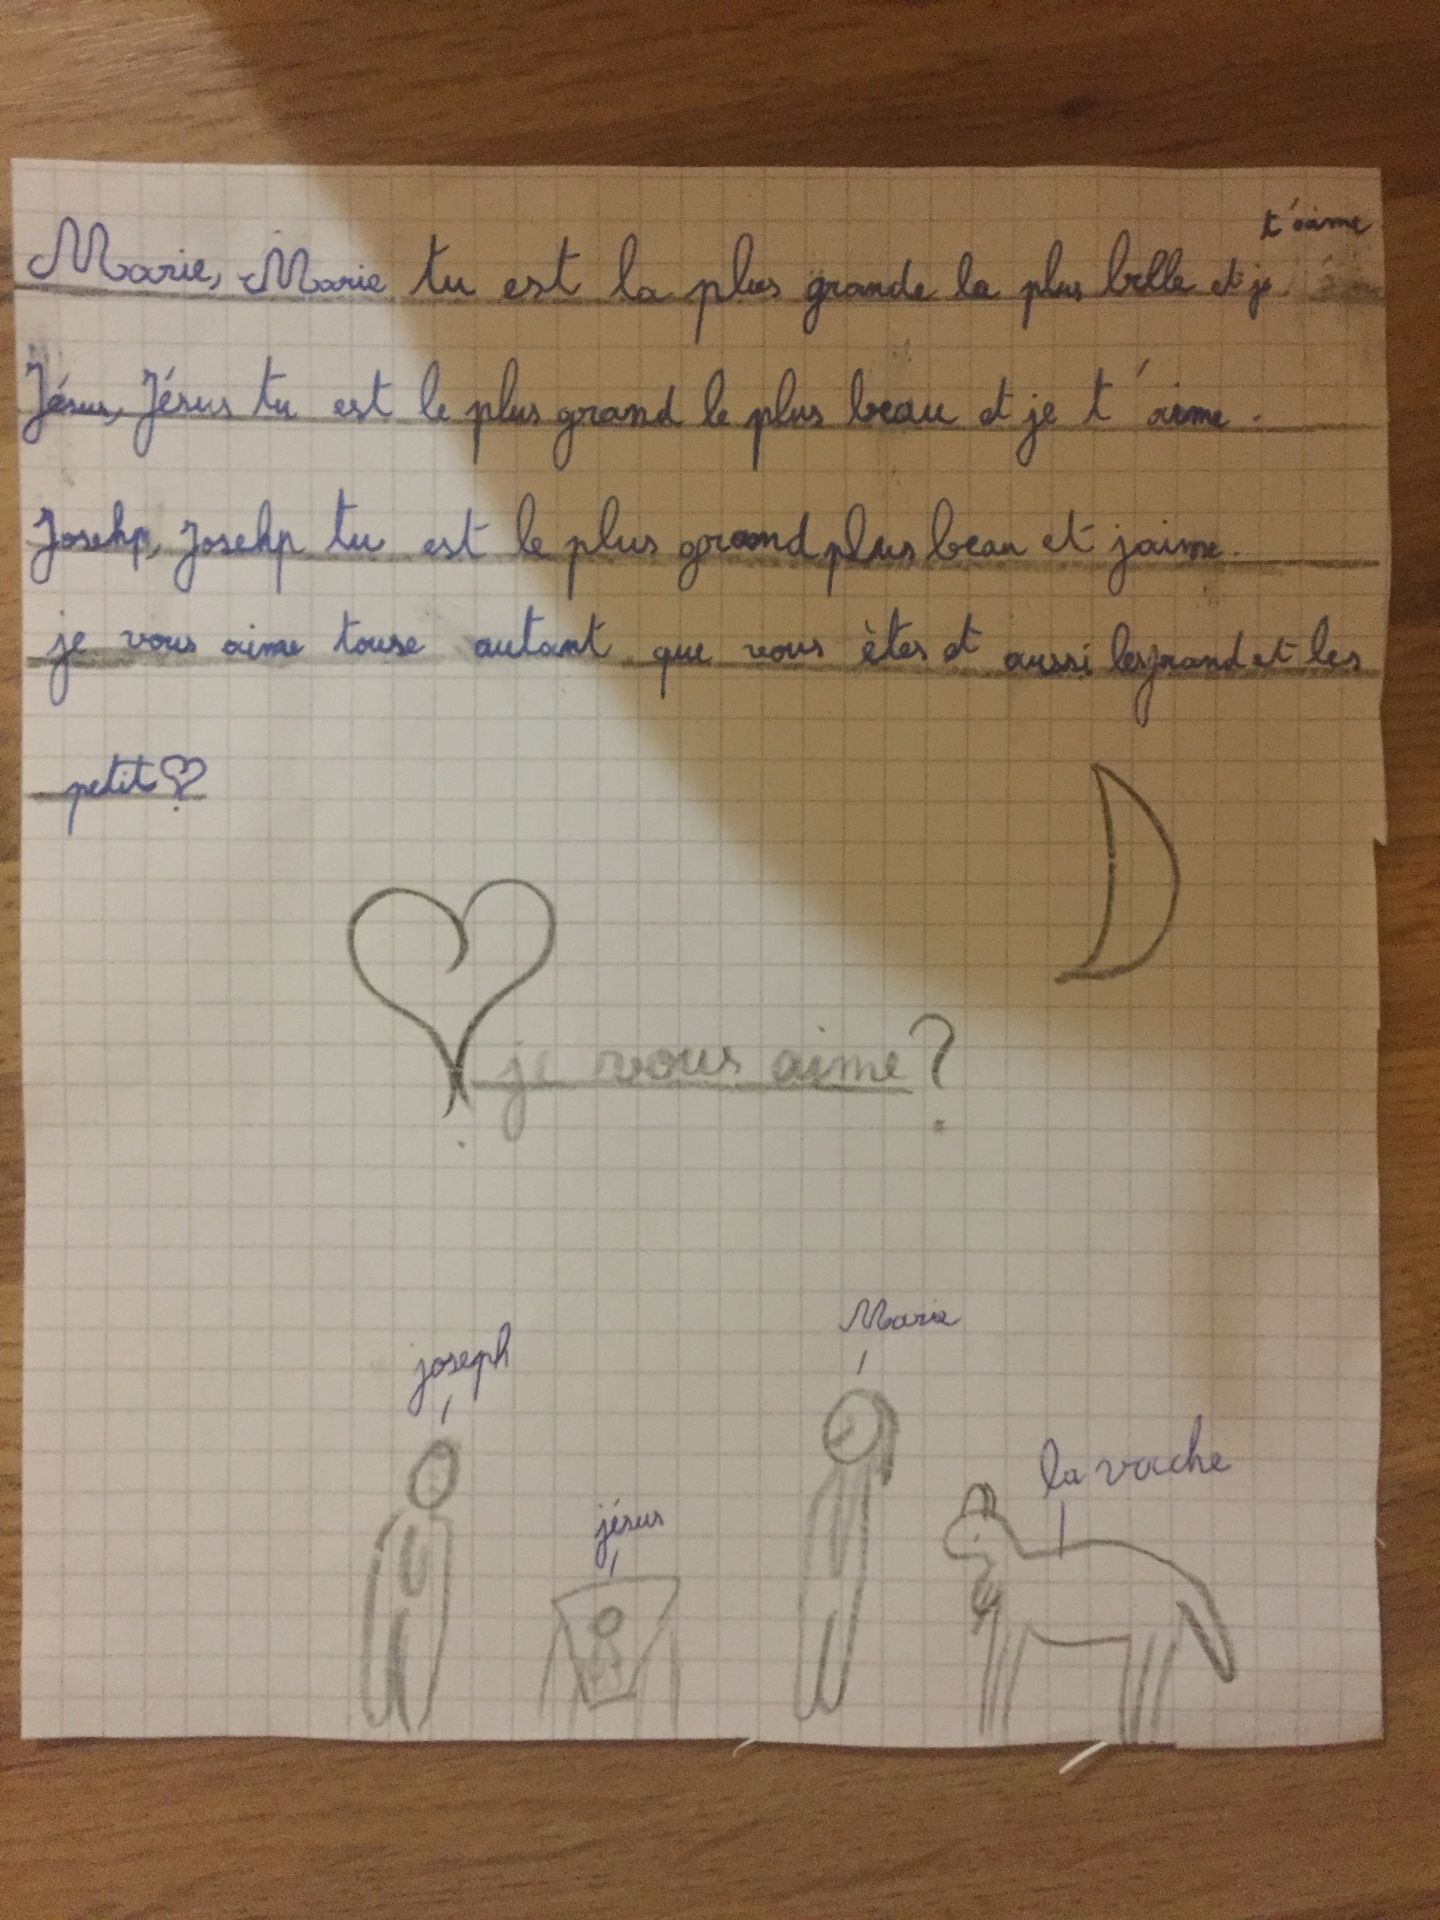 t'aime
Marie, Marie tu est la plus grande la plus belle et je
Jésus, Jésus tu est le plus grand le plus beau et je t'aime.
Josehp, Josehp tu est le plus grand plus beau et jaime.
je vous aime touse autant que vous êtes et aussi les grand et les
petit
je vous aime ?
Marie
joseph
la vache
jésus